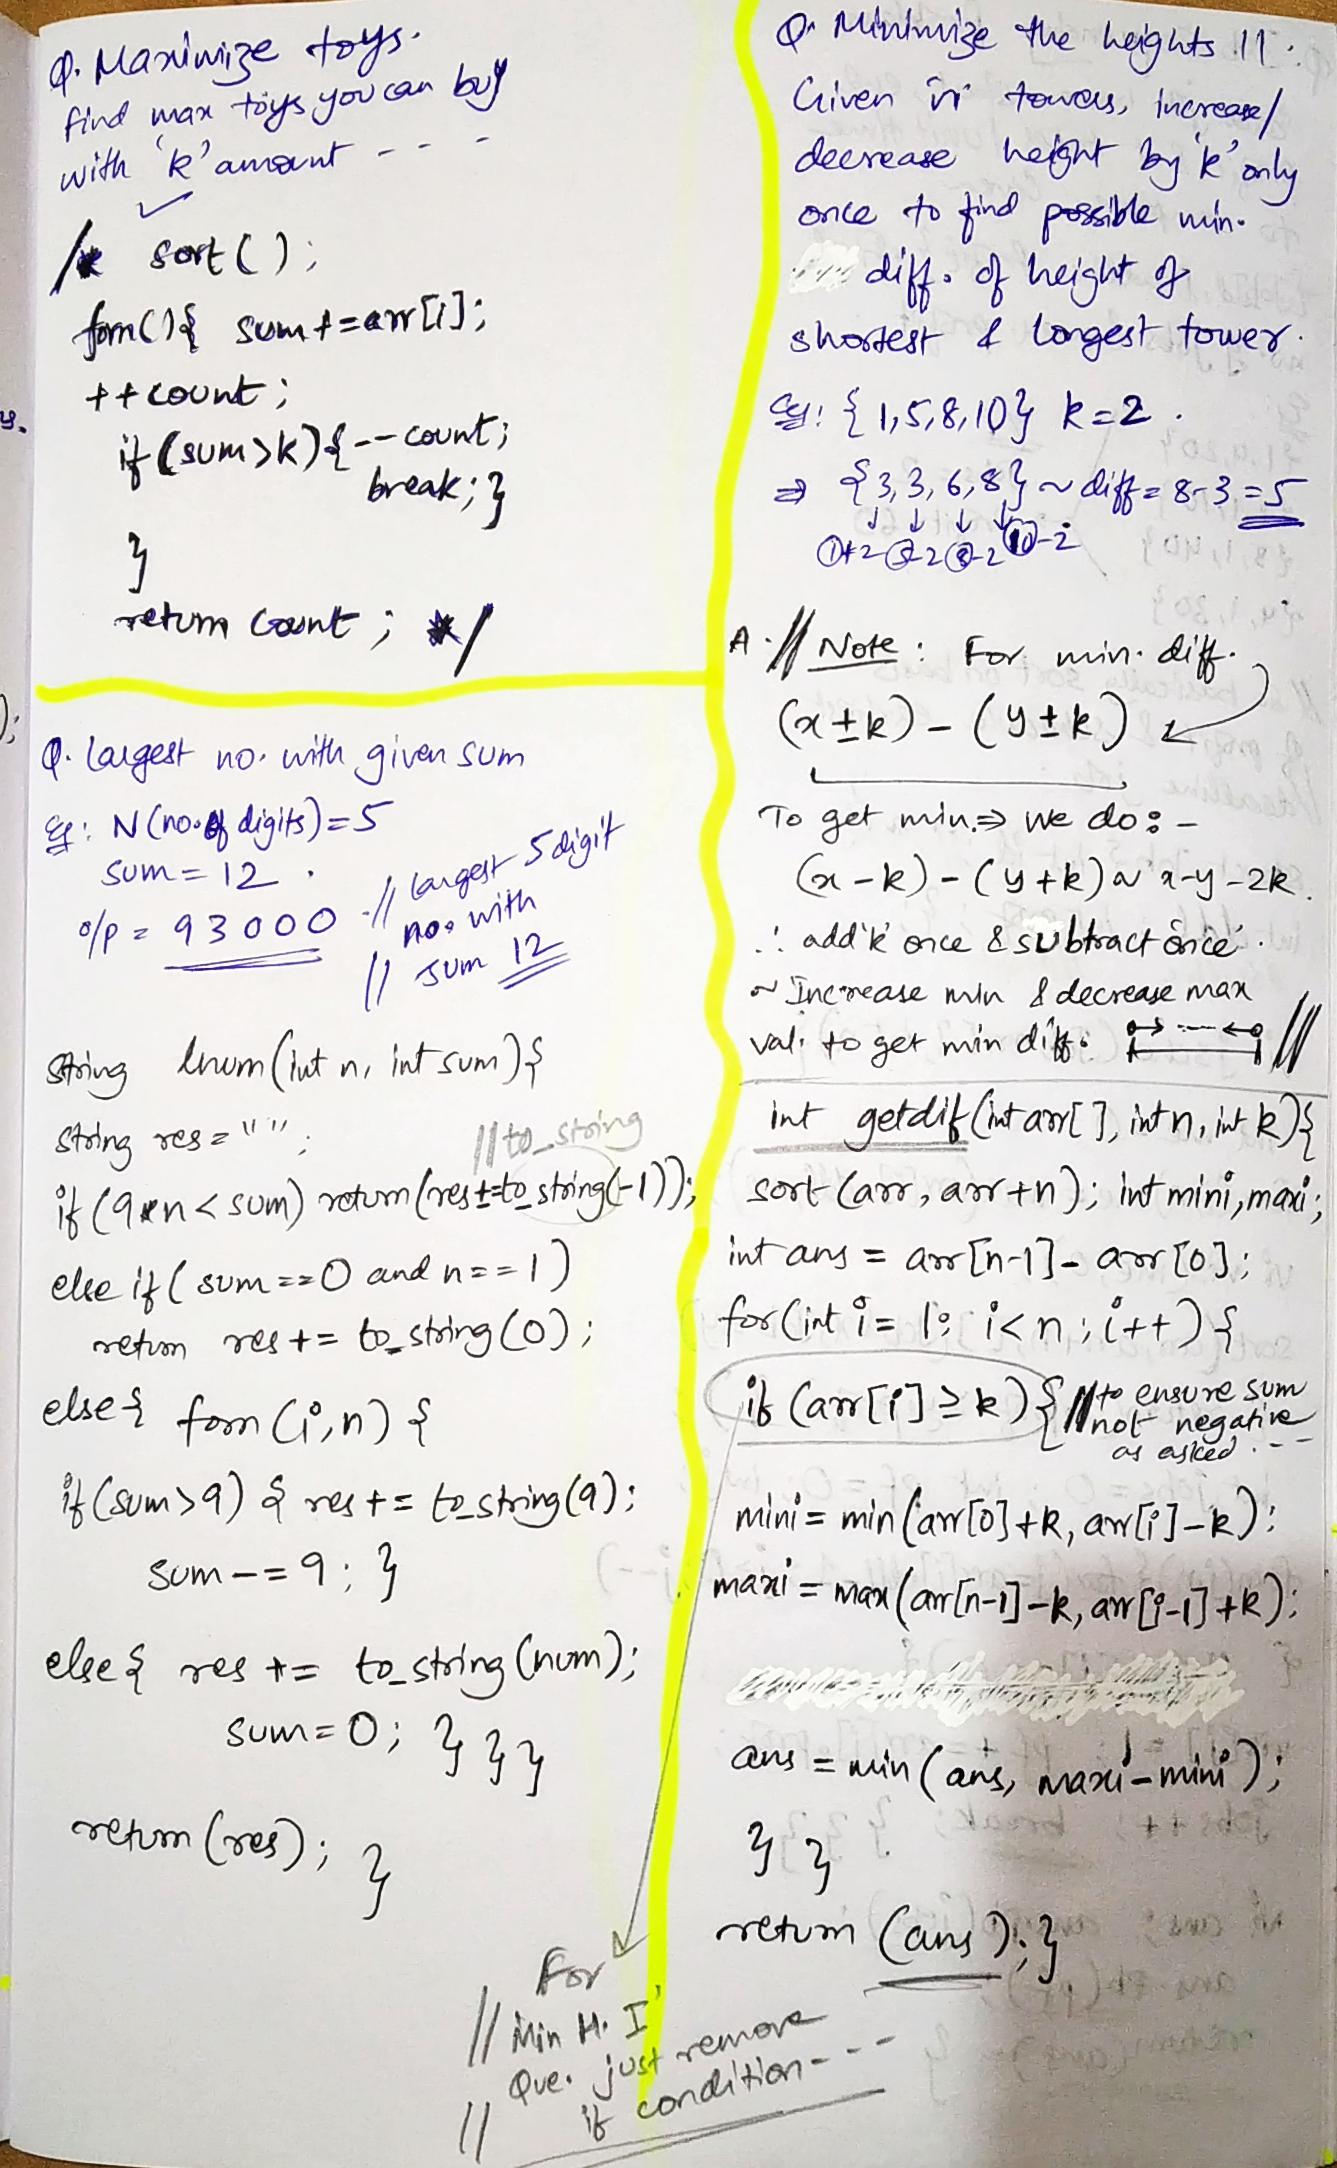 Q. Maximize toys.
find max toys you can buy
with 'k' amount - - -
/* sort( );
forn( ){ sum+=arr[i];
++count;
if(sum>k){--count;
break;}
}
return count; */
Q. Largest no. with given sum
Eg: N(no. of digits)=5
sum=12.
o/p = 93000 // largest 5 digit
no. with
// sum 12
string lnum(int n, int sum){
string res="";
//to_string
if(9*n<sum) return(res+=to_string(-1));
else if(sum==0 and n==1)
return res+= to_string(0);
else{ forn(i,n) {
if(sum>9) { res+= to_string(9);
sum-=9; }
else{ res += to_string(num);
sum=0; } } }
return(res); }
Q. Minimize the heights II.
Given 'n' towers, increase/
decrease height by 'k' only
once to find possible min.
diff. of height of
shortest & longest tower.
eg: {1,5,8,10} k=2.
⇒ {3,3,6,8} ~ diff= 8-3 =5
1+2 5-2 8-2 10-2
A. // Note: For min. diff.
(x±k) - (y±k)
To get min. ⇒ we do:-
(x-k)-(y+k) ~ x-y-2k.
∴ add 'k' once & subtract once.
~ Increase min & decrease max
val. to get min diff. //
int getdif(int arr[ ], int n, int k){
sort(arr, arr+n); int mini, maxi;
int ans = arr[n-1]- arr[0];
for(int i= 1; i<n; i++){
if(arr[i]≥k){ // to ensure sum
// not negative
as asked. ---
mini= min(arr[0]+k, arr[i]-k);
maxi= max(arr[n-1]-k, arr[i-1]+k);
ans = min(ans, maxi-mini);
} }
return (ans);}
For
// Min H. I
Que. just remove
// if condition---